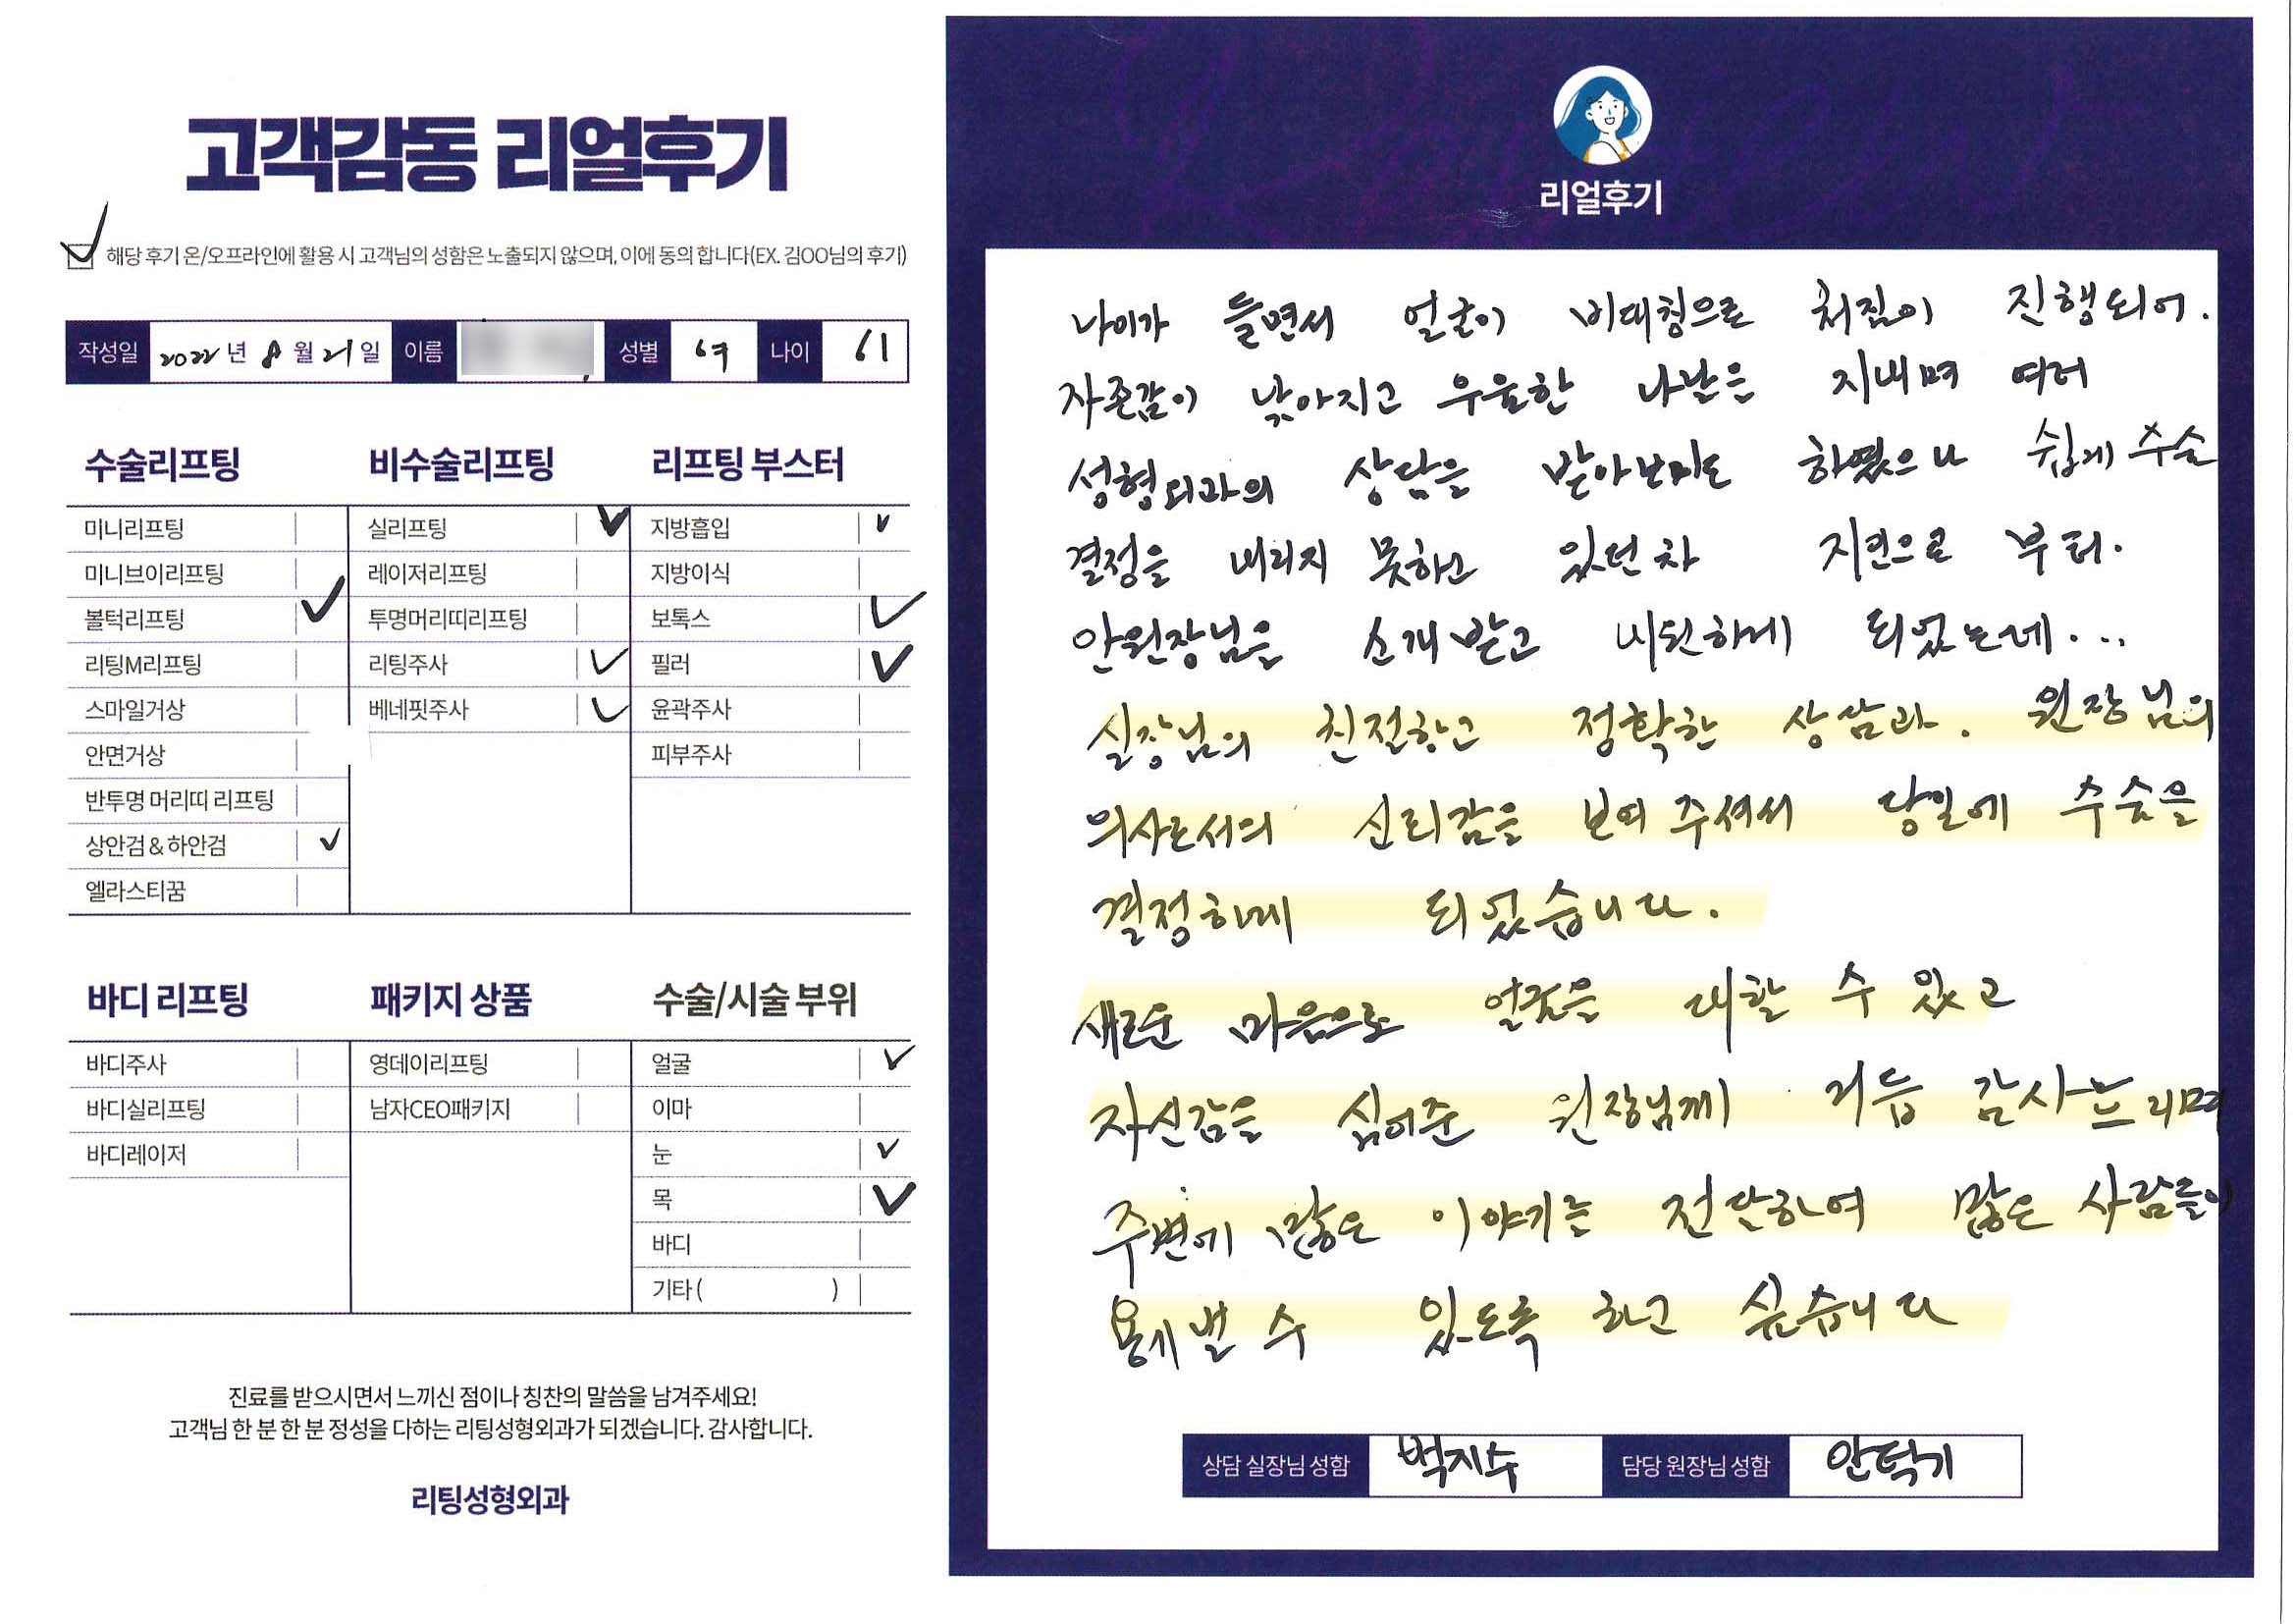 고객감동 리얼후기
해당 후기 온/오프라인에 활용 시 고객님의 성함은 노출되지 않으며, 이에 동의 합니다(EX. 김OO님의 후기)
작성일 2022년 8월 21일 이름 성별 여 나이 61
수술리프팅
미니리프팅
미니브이리프팅
볼턱리프팅
리팅M리프팅
스마일거상
안면거상
반투명 머리띠 리프팅
상안검 & 하안검
엘라스티꿈
비수술리프팅
실리프팅
레이저리프팅
투명머리띠리프팅
리팅주사
베네핏주사
리프팅 부스터
지방흡입
지방이식
보톡스
필러
윤곽주사
피부주사
바디 리프팅
바디주사
바디실리프팅
바디레이저
패키지 상품
영데이리프팅
남자CEO패키지
수술/시술 부위
얼굴
이마
눈
목
바디
기타 ( )
진료를 받으시면서 느끼신 점이나 칭찬의 말씀을 남겨주세요!
고객님 한 분 한 분 정성을 다하는 리팅성형외과가 되겠습니다. 감사합니다.
리팅성형외과
리얼후기
나이가 들면서 얼굴이 비대칭으로 처짐이 진행되어.
자존감이 낮아지고 우울한 나날을 지내며 여러
성형외과의 상담을 받아보기도 하였으나 쉽게 수술
결정을 내리지 못하고 있던차 지인으로 부터.
안원장님을 소개받고 내원하게 되었는데...
실장님의 친절하고 정확한 상담과. 원장님의
의사로서의 신뢰감을 보여 주셔서 당일에 수술을
결정하게 되었습니다.
새로운 마음으로 얼굴을 대할 수 있고
자신감을 심어준 원장님께 거듭 감사드리며
주변에 많은 이야기를 전달하여 많은 사람들이
용기낼 수 있도록 하고 싶습니다
상담 실장님 성함 박지수 담당 원장님 성함 안덕기